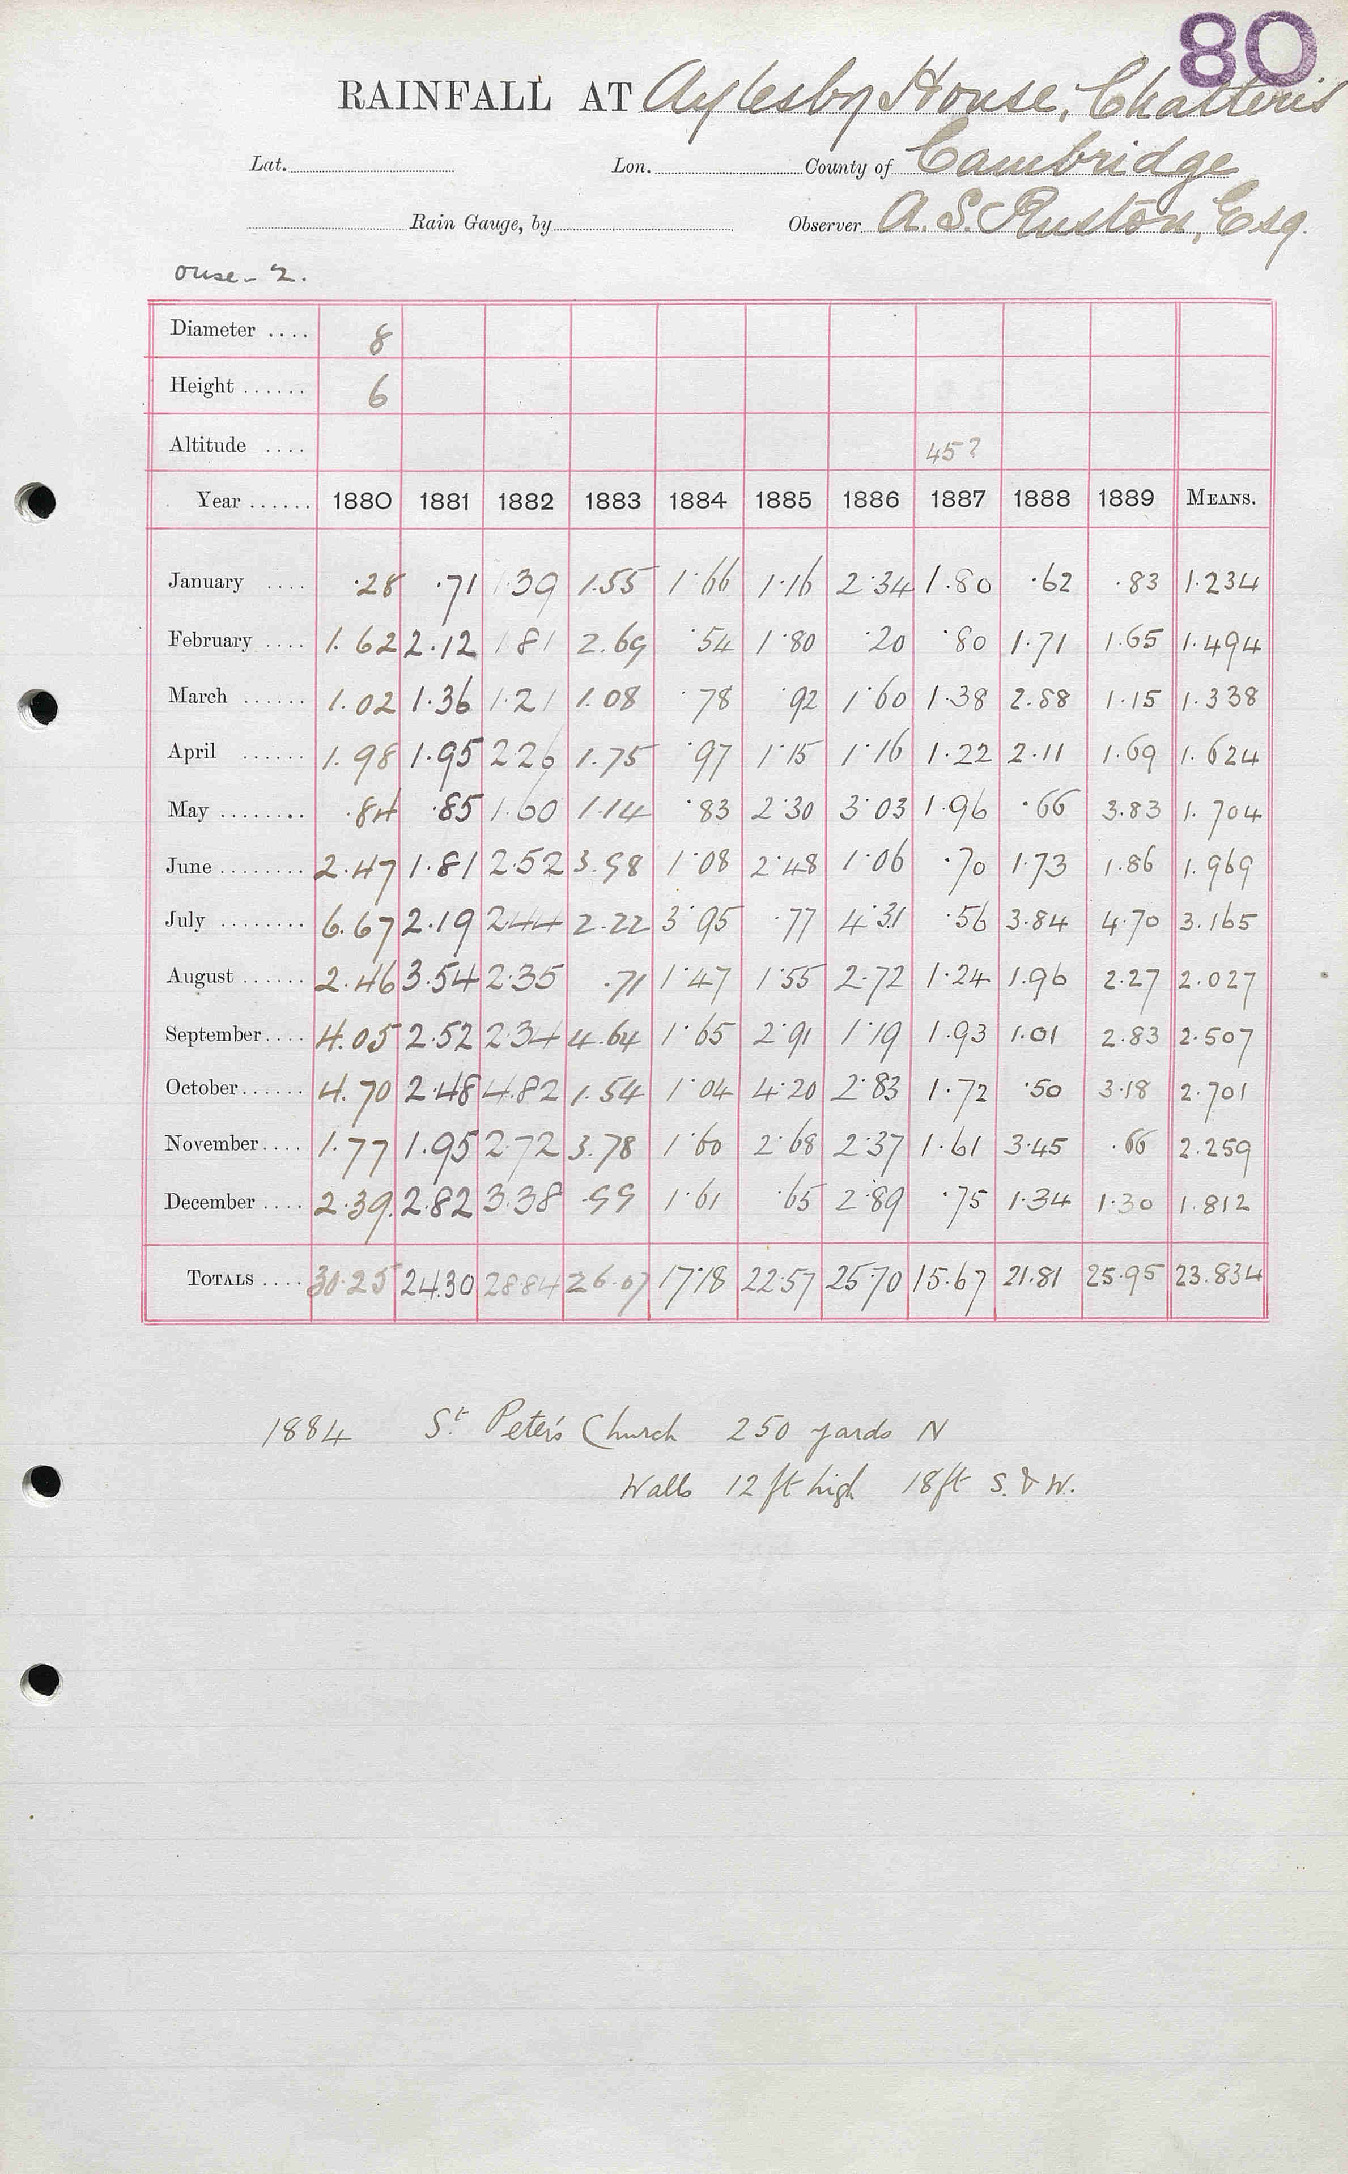 80
RAINFALL AT Aylesby House, Chatteris
Lat. Lon. County of Cambridge
Rain Gauge, by Observer A. S. Ruston, Esq.
Ouse - 2.
Diameter .... 8
Height ...... 6
Altitude .... 45?
Year ...... 1880 1881 1882 1883 1884 1885 1886 1887 1888 1889 MEANS.
January .... .28 .71 1.39 1.55 1.66 1.16 2.34 1.80 .62 .83 1.234
February .... 1.62 2.12 1.81 2.69 .54 1.80 .20 .80 1.71 1.65 1.494
March ...... 1.02 1.36 1.21 1.08 .78 .92 1.60 1.38 2.88 1.15 1.338
April ...... 1.98 1.95 2.26 1.75 .97 1.15 1.16 1.22 2.11 1.69 1.624
May ........ .84 .85 1.60 1.14 .83 2.30 3.03 1.96 .66 3.83 1.704
June ........ 2.47 1.81 2.52 3.98 1.08 2.48 1.06 .70 1.73 1.86 1.969
July ........ 6.67 2.19 2.44 2.22 3.95 .77 4.31 .56 3.84 4.70 3.165
August ...... 2.46 3.54 2.35 .71 1.47 1.55 2.72 1.24 1.96 2.27 2.027
September.... 4.05 2.52 2.34 4.64 1.65 2.91 1.19 1.93 1.01 2.83 2.507
October...... 4.70 2.48 4.82 1.54 1.04 4.20 2.83 1.72 .50 3.18 2.701
November.... 1.77 1.95 2.72 3.78 1.60 2.68 2.37 1.61 3.45 .66 2.259
December .... 2.39 2.82 3.38 .99 1.61 .65 2.89 .75 1.34 1.30 1.812
TOTALS .... 30.25 24.30 28.84 26.07 17.18 22.57 25.70 15.67 21.81 25.95 23.834
1884 St. Peter's Church 250 yards N
Walls 12 ft high 18 ft S. & W.